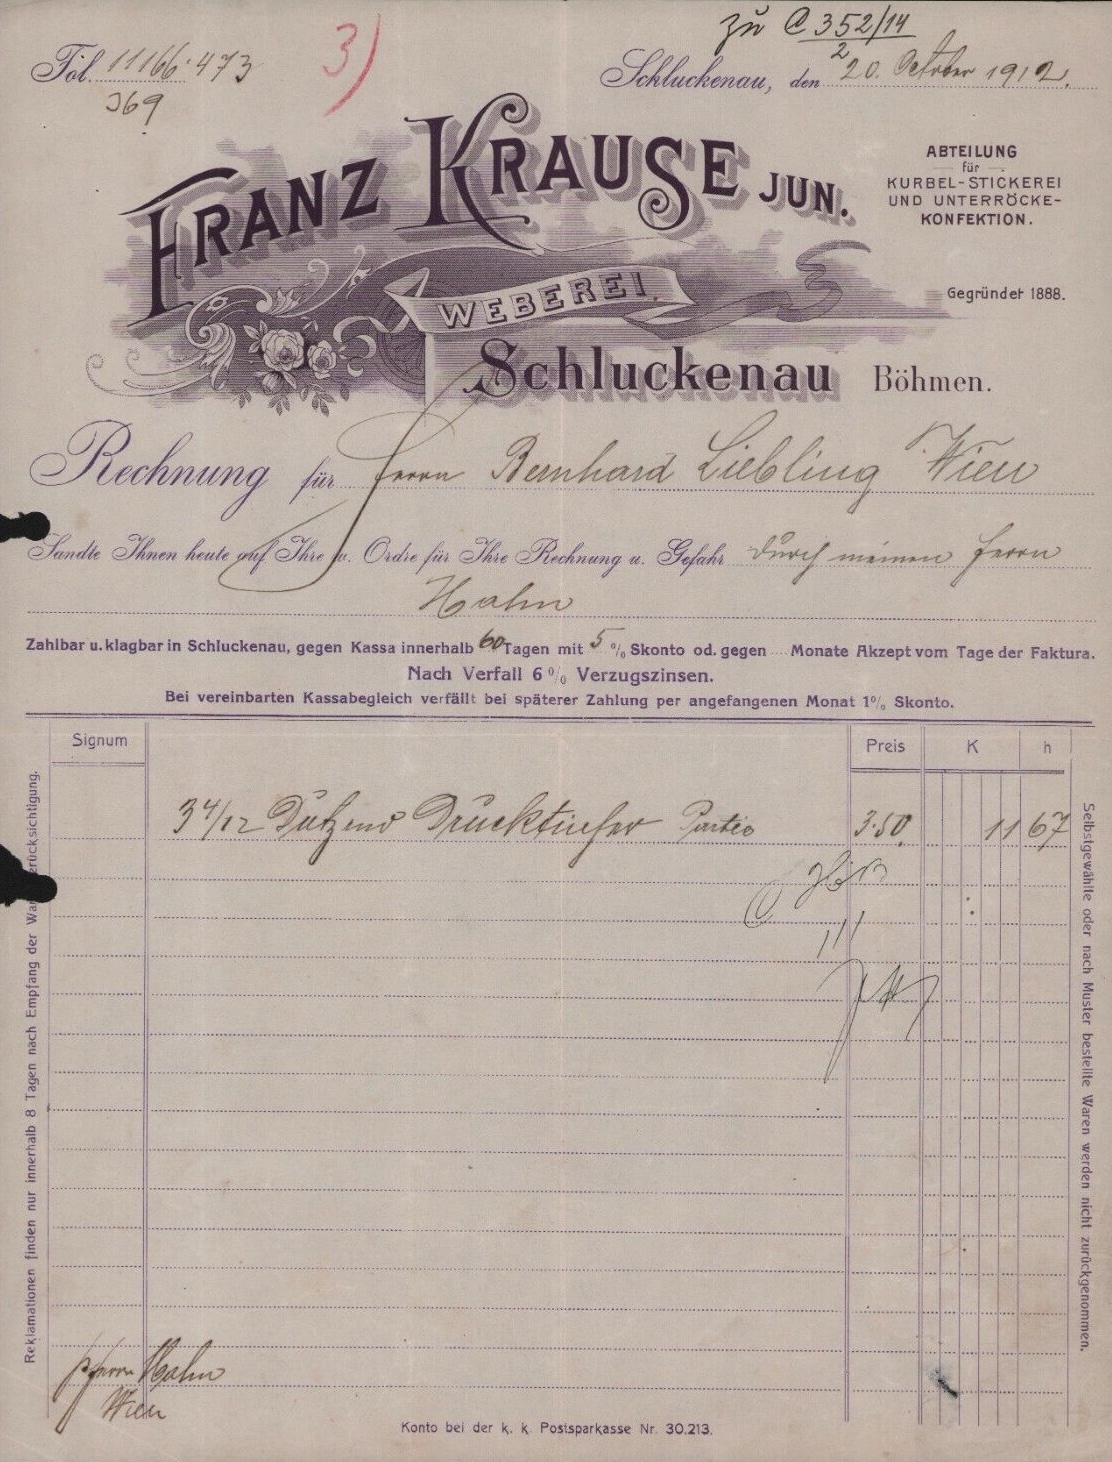 zu C 352/14
2
Fol. 11166·473
369
3)
Schluckenau, den 20. October 1912.
FRANZ KRAUSE JUN.
ABTEILUNG
für
KURBEL-STICKEREI
UND UNTERRÖCKE-
KONFEKTION.
WEBEREI.
Gegründet 1888.
Schluckenau Böhmen.
Rechnung für Herrn Bernhard Liebling Wien
Sandte Ihnen heute auf Ihre w. Ordre für Ihre Rechnung u. Gefahr durch meinen Herrn
Hahn
Zahlbar u. klagbar in Schluckenau, gegen Kassa innerhalb 60 Tagen mit 5 % Skonto od. gegen .... Monate Akzept vom Tage der Faktura.
Nach Verfall 6% Verzugszinsen.
Bei vereinbarten Kassabegleich verfällt bei späterer Zahlung per angefangenen Monat 1% Skonto.
Signum Preis K h
3 4/12 Dutzend Drucktücher Partie 3·50 11 67
Reklamationen finden nur innerhalb 8 Tagen nach Empfang der
Selbstgewählte oder nach Muster bestellte Waren werden nicht zurückgenommen.
p Herrn Hahn
Wien
Konto bei der k. k. Postsparkasse Nr. 30.213.